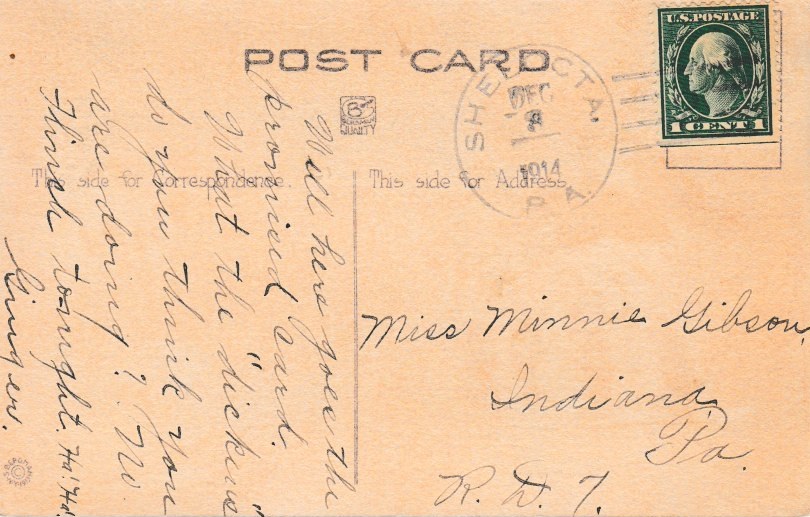 POST CARD
U.S. POSTAGE
1 CENT 1
SHELOCTA.
DEC
8
1914
PA.
QUALITY
This side for Correspondence.
This side for Address.
Well here goes the
promised card.
What the "dickens"
do you think you
are doing? No
think tonight. Ha! Ha!
Ginger.
Miss Minnie Gibson,
Indiana
Pa.
R. D. 7.